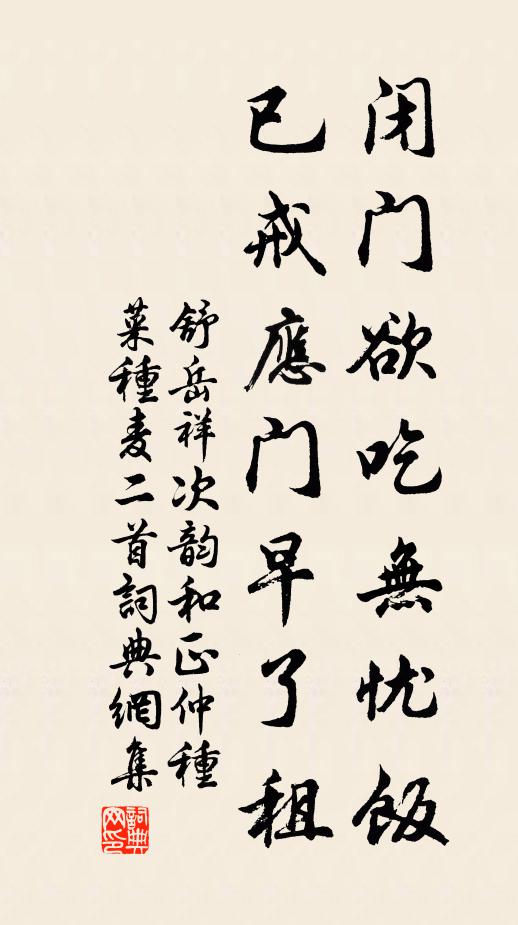 闭门欲吃無忧飯
已戒應门早了租
舒岳祥次韵和正仲種
菜種麦二首詞典網集
詞典网印